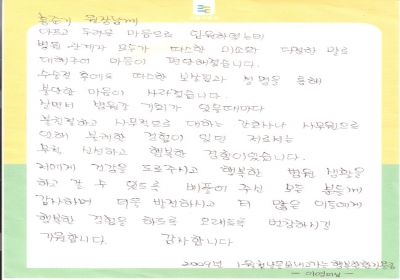 홍순기 원장님께
아프고 두려운 마음으로 입원하였는데
병원 관계자 모두가 따스한 미소와 다정한 말로
대해주어 마음이 편안해졌습니다.
수술전 후에도 따스한 보살핌과 설명을 통해
불안한 마음이 사라졌습니다.
살면서 병원갈 기회가 있을때마다
불친절하고 사무적으로 대하는 간호사나 사무원으로
인해 불쾌한 경험이 있던 저로서는
무척 신선하고 행복한 경험이었습니다.
저에게 건강을 되돌려주시고 행복한 병원 생활을
하고 갈 수 있도록 베풀어 주신 모든 분들께
감사하며 더욱 발전하시고 더 많은 이들에게
행복한 경험을 하도록 오래토록 번창하시길
기원합니다. 감사합니다
2009년 1월 행복한